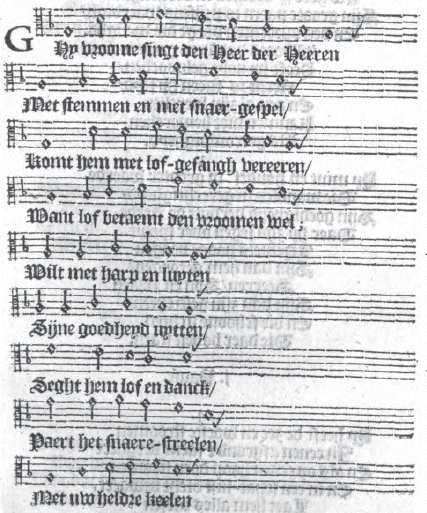 Ghy vroome singt den Heer der Heeren
Met stemmen en met snaer-gespel/
Komt hem met lof-gesangh vereeren/
Want lof betaemt den vroomen wel;
Wilt met harp en luyten
Sijne goedheyd uytten/
Seght hem lof en danck/
Paert het snaere-streelen/
Met uw heldre keelen